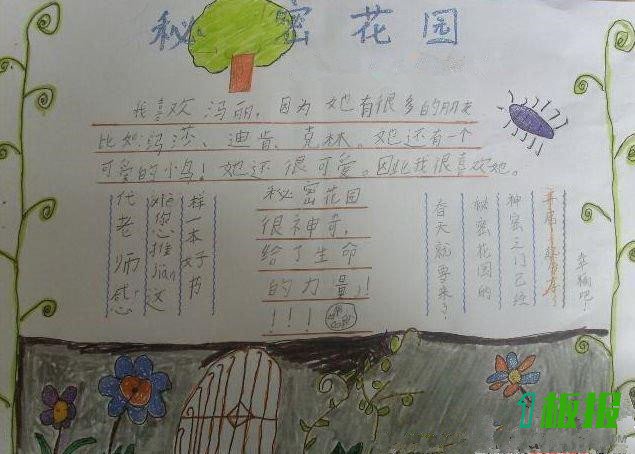 秘密花园
我喜欢玛丽,因为她有很多的朋友
比如玛莎、迪肯、克林。她还有一个
可爱的小鸟!她还很可爱。因此我很喜欢她。
代老师感
xiè您推jiàn这
样一本好书
秘密花园
很神奇,
给了生命
的力量,!
!!!
神密之门已经
秘密花园的
春天就要来了!
1板报